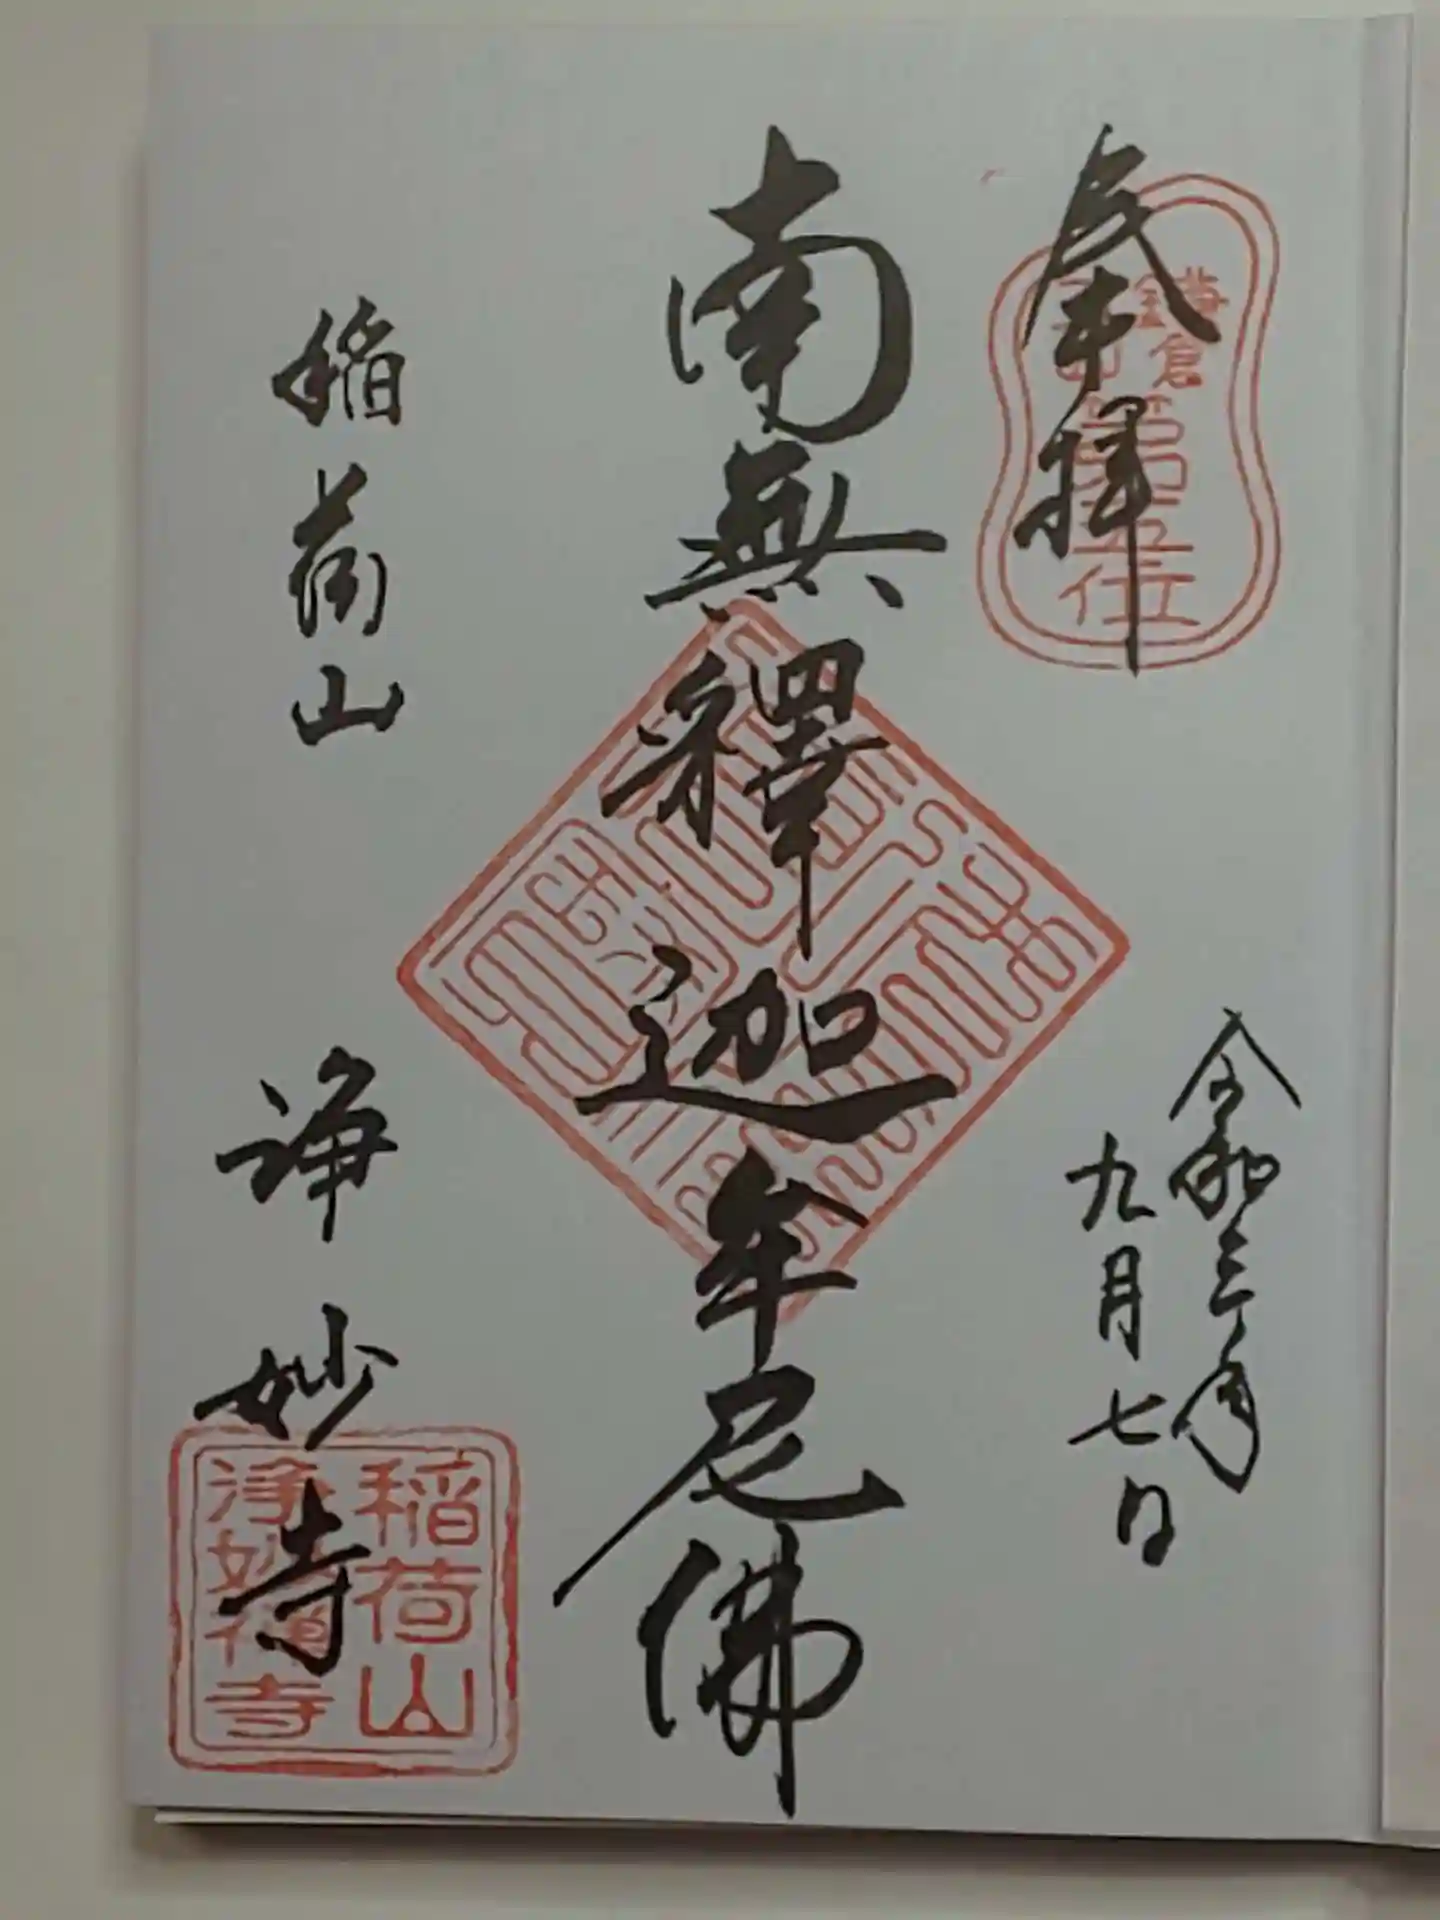 奉拝
鎌倉
五山
第五位
令和三年
九月七日
南無釋迦牟尼佛
稲荷山
浄妙寺
稲荷山
浄妙禅寺